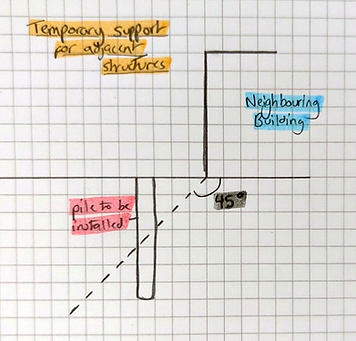 Temporary support
for adjacent
structures
Neighbouring
Building
pile to be
installed
45°